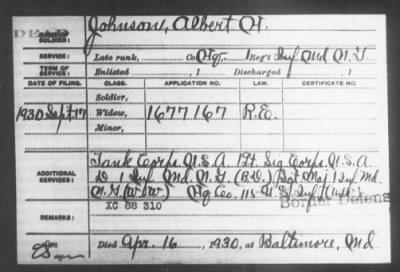 Johnson, Albert H.
SOLDIER:
SERVICE: Late rank, Co Hqr. Reg't Inf Md N. G
TERM OF SERVICE: Enlisted , 1 Discharged , 1
DATE OF FILING. CLASS. APPLICATION NO. LAW. CERTIFICATE NO.
Soldier,
1930 Sept 17 Widow, 1677167 R.E.
Minor,
ADDITIONAL SERVICES:
Tank Corps U.S.A. Det. Sig Corps U.S.A.
D 1 Inf. Md. N. G. (B.D.) Bat Maj 1 Inf Md.
N. G. (W.W.) Hq Co. 115 U.S. Inf
Border Defens
XC 88 310
REMARKS:
Died Apr. 16 , 1930, at Baltimore, Md